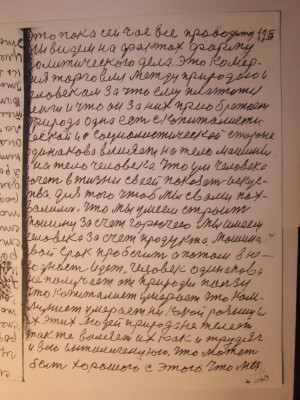 это пока сейчас все проводят 125
Мы видем на фактах форму
политического дела. Это Комер-
ия торговли Между природой и
человеком За что ему платют
еньги и что он За них приобретает
природа одна сет с Копиталисти
еской и с Социолистической стороне
одинакова влияет на тело машины
на тело человека Что ум человека
хочет в жизни своей показат искус
ства. для того чтоб Мы с вами пох-
валили. Что Мы умеем строит
машину За счет горючего Мы имеем
человека За счет продукта. Машина
свой срок пробежит а потом в не-
годност идет, человек одинакова
не получает от природы ползу
что Копиталист умерает что Ком-
мунист умерает ни какой розницы
их этих людей природа не жалеет
так же валяет их как и трудяг
и всю интилегенцию. Что может
быт хорошого с этого что мы